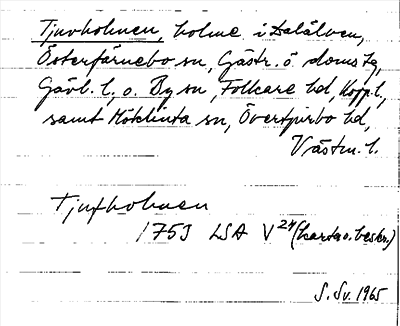 Tjuvholmen, holme i Dalälven,
Österfärnebo sn, Gästr. ö. doms tg,
Gävl. l., o. By sn, Folkare hd, Kopp. l.,
samt Möklinta sn, Övertjurbo hd,
Västm. l.
Tjufholmen
1753 LSA V 24 (karta o. beskr.)
S. Sv. 1965